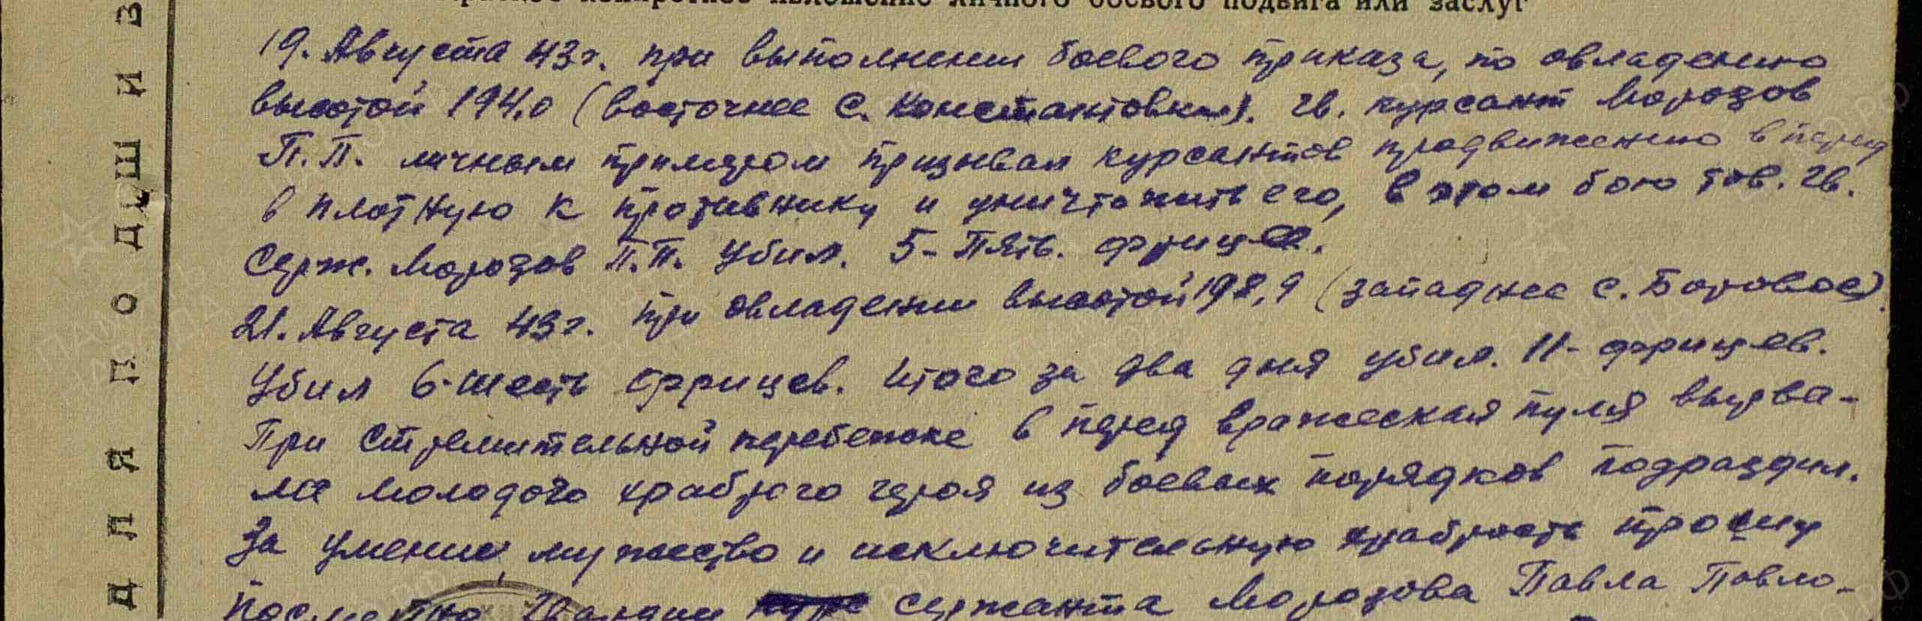 краткое конкретное изложение личного боевого подвига или заслуг
19. Августа 43г. при выполнении боевого приказа, по овладению
высотой 194,0 (восточнее с. Константовки). гв. курсант Морозов
П.П. личным примером призывал курсантов продвижению в перед
в плотную к противнику и уничтожить его, в этом бою тов. гв.
Серж. Морозов П.П. убил. 5-Пять. фрицев.
21. Августа 43г. при овладении высотой 198,9 (западнее с. Боровое).
Убил 6-шесть фрицев. Итого за два дня убил. 11-фрицев.
При стремительной перебежке в перед вражеская пуля вырва-
ла молодого храброго героя из боевых порядков подраздел.
За умение, мужество и исключительную храбрость прошу
посмертно Гвардии сержанта Морозова Павла Павло-
ДЛЯ ПОДШИВ